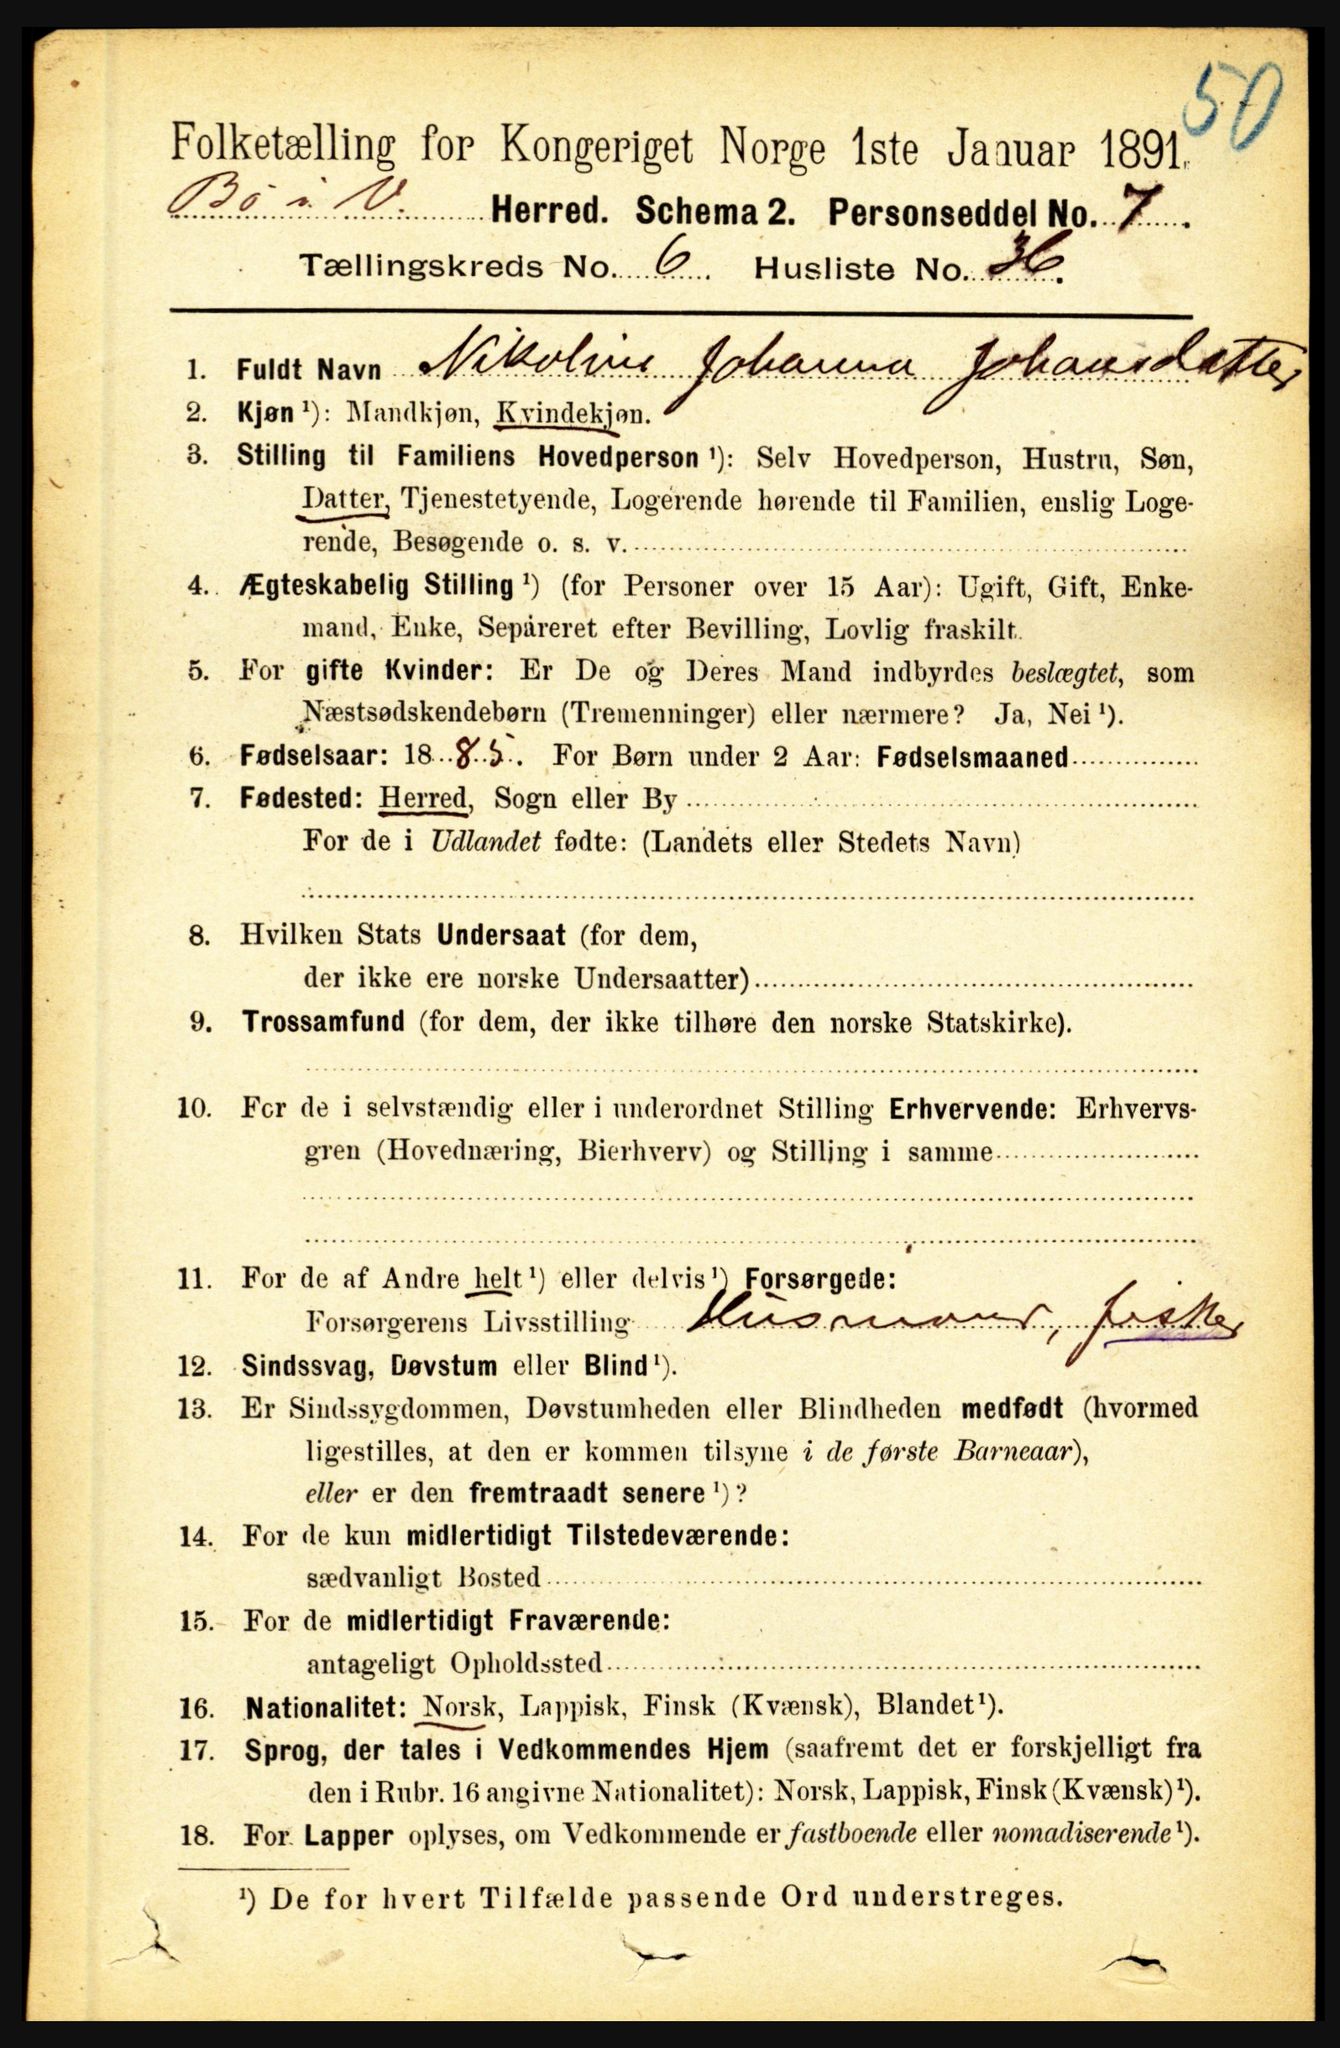 50
Folketælling for Kongeriget Norge 1ste Januar 1891.
Bö i V. Herred. Schema 2. Personseddel No. 7.
Tællingskreds No. 6. Husliste No. 36.
1. Fuldt Navn Nikoline Johanna Johansdatter
2. Kjøn ¹): Mandkjøn, Kvindekjøn.
3. Stilling til Familiens Hovedperson ¹): Selv Hovedperson, Hustru, Søn,
Datter, Tjenestetyende, Logerende hørende til Familien, enslig Loge-
rende, Besøgende o. s. v.
4. Ægteskabelig Stilling ¹) (for Personer over 15 Aar): Ugift, Gift, Enke-
mand, Enke, Separeret efter Bevilling, Lovlig fraskilt.
5. For gifte Kvinder: Er De og Deres Mand indbyrdes beslægtet, som
Næstsødskendebørn (Tremenninger) eller nærmere? Ja, Nei ¹).
6. Fødselsaar: 1885. For Børn under 2 Aar: Fødselsmaaned
7. Fødested: Herred, Sogn eller By
For de i Udlandet fødte: (Landets eller Stedets Navn)
8. Hvilken Stats Undersaat (for dem,
der ikke ere norske Undersaatter)
9. Trossamfund (for dem, der ikke tilhøre den norske Statskirke).
10. For de i selvstændig eller i underordnet Stilling Erhvervende: Erhvervs-
gren (Hovednæring, Bierhverv) og Stilling i samme
11. For de af Andre helt ¹) eller delvis ¹) Forsørgede:
Forsørgerens Livsstilling Husmand, fisker
12. Sindssvag, Døvstum eller Blind ¹).
13. Er Sindssygdommen, Døvstumheden eller Blindheden medfødt (hvormed
ligestilles, at den er kommen tilsyne i de første Barneaar),
eller er den fremtraadt senere ¹)?
14. For de kun midlertidigt Tilstedeværende:
sædvanligt Bosted
15. For de midlertidigt Fraværende:
antageligt Opholdssted
16. Nationalitet: Norsk, Lappisk, Finsk (Kvænsk), Blandet ¹).
17. Sprog, der tales i Vedkommendes Hjem (saafremt det er forskjelligt fra
den i Rubr. 16 angivne Nationalitet): Norsk, Lappisk, Finsk (Kvænsk) ¹).
18. For Lapper oplyses, om Vedkommende er fastboende eller nomadiserende ¹).
¹) De for hvert Tilfælde passende Ord understreges.